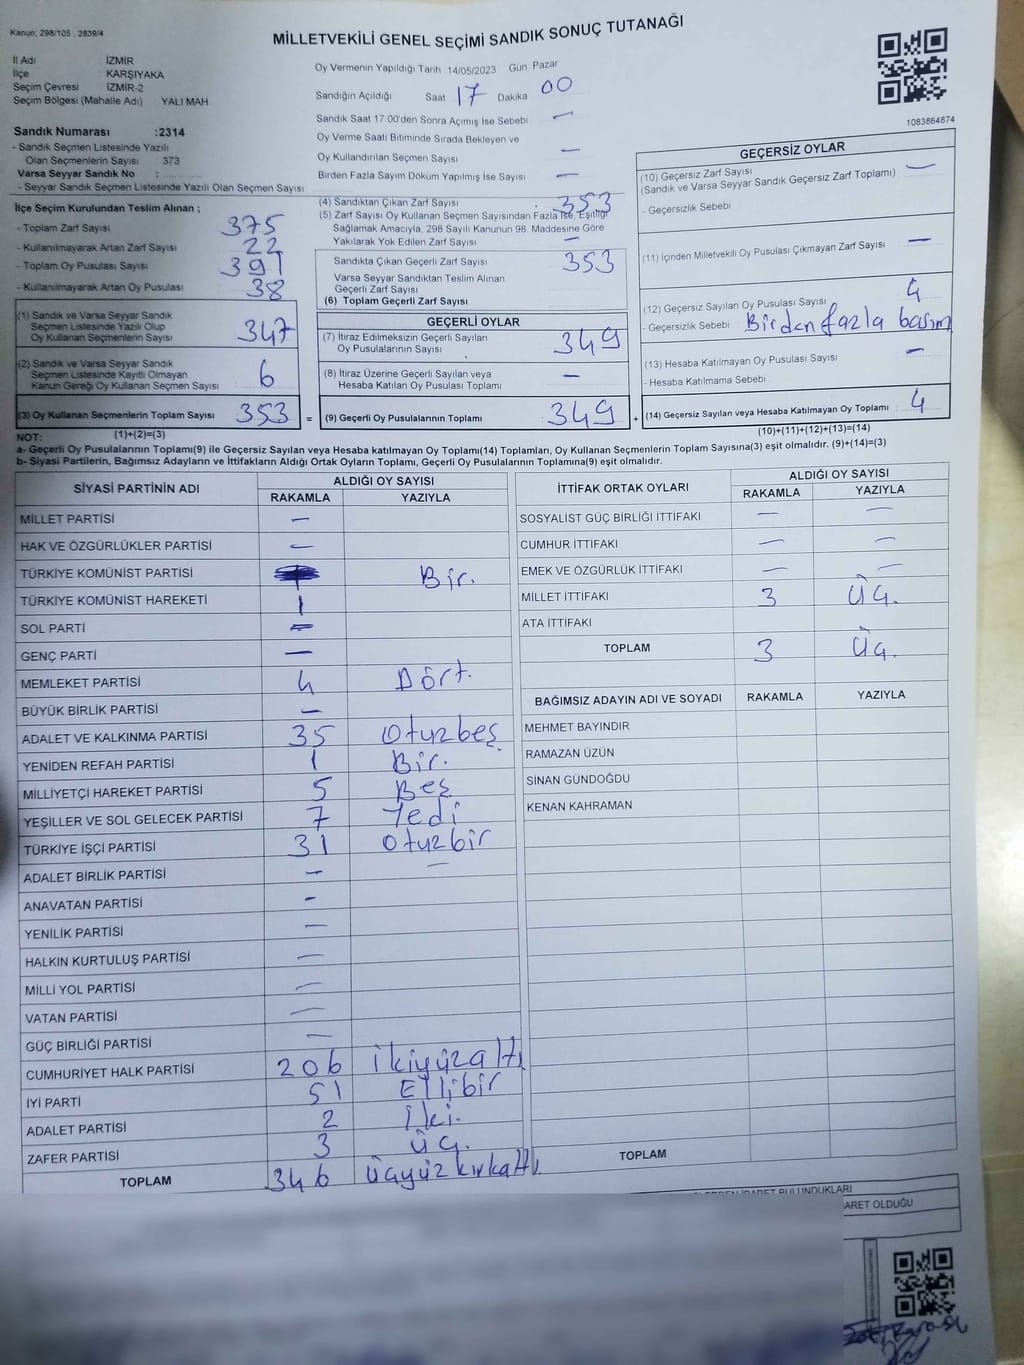 Kanun: 298/105 . 2839/4
MİLLETVEKİLİ GENEL SEÇİMİ SANDIK SONUÇ TUTANAĞI
İl Adı : İZMİR
İlçe : KARŞIYAKA
Seçim Çevresi : İZMİR-2
Seçim Bölgesi (Mahalle Adı) YALI MAH
Sandık Numarası :2314
- Sandık Seçmen Listesinde Yazılı
Olan Seçmenlerin Sayısı : 373
Varsa Seyyar Sandık No :
- Seyyar Sandık Seçmen Listesinde Yazılı Olan Seçmen Sayısı
Oy Vermenin Yapıldığı Tarih 14/05/2023 Gün Pazar
Sandığın Açıldığı Saat 17 Dakika 00
Sandık Saat 17.00'den Sonra Açımış İse Sebebi —
Oy Verme Saati Bitiminde Sırada Bekleyen ve
Oy Kullandırılan Seçmen Sayısı —
Birden Fazla Sayım Döküm Yapılmış İse Sayısı —
1083864874
İlçe Seçim Kurulundan Teslim Alınan ;
- Toplam Zarf Sayısı 375
- Kullanılmayarak Artan Zarf Sayısı 22
- Toplam Oy Pusulası Sayısı 391
- Kullanılmayarak Artan Oy Pusulası 38
(1) Sandık ve Varsa Seyyar Sandık
Seçmen Listesinde Yazılı Olup
Oy Kullanan Seçmenlerin Sayısı 347
(2) Sandık ve Varsa Seyyar Sandık
Seçmen Listesinde Kayıtlı Olmayan
Kanun Gereği Oy Kullanan Seçmen Sayısı 6
(3) Oy Kullanan Seçmenlerin Toplam Sayısı 353 =
(4) Sandıktan Çıkan Zarf Sayısı 353
(5) Zarf Sayısı Oy Kullanan Seçmen Sayısından Fazla İse, Eşitliği
Sağlamak Amacıyla, 298 Sayılı Kanunun 98. Maddesine Göre
Yakılarak Yok Edilen Zarf Sayısı —
Sandıkta Çıkan Geçerli Zarf Sayısı 353
Varsa Seyyar Sandıktan Teslim Alınan
Geçerli Zarf Sayısı
(6) Toplam Geçerli Zarf Sayısı
GEÇERLİ OYLAR
(7) İtiraz Edilmeksizin Geçerli Sayılan
Oy Pusulalarının Sayısı 349
(8) İtiraz Üzerine Geçerli Sayılan veya
Hesaba Katılan Oy Pusulası Toplamı —
(9) Geçerli Oy Pusulalarının Toplamı 349 +
GEÇERSİZ OYLAR
(10) Geçersiz Zarf Sayısı —
(Sandık ve Varsa Seyyar Sandık Geçersiz Zarf Toplamı)
- Geçersizlik Sebebi
(11) İçinden Milletvekili Oy Pusulası Çıkmayan Zarf Sayısı —
(12) Geçersiz Sayılan Oy Pusulası Sayısı 4
- Geçersizlik Sebebi Birden fazla basım
(13) Hesaba Katılmayan Oy Pusulası Sayısı —
- Hesaba Katılmama Sebebi
(14) Geçersiz Sayılan veya Hesaba Katılmayan Oy Toplamı 4
NOT: (1)+(2)=(3) (10)+(11)+(12)+(13)=(14)
a- Geçerli Oy Pusulalarının Toplamı(9) ile Geçersiz Sayılan veya Hesaba katılmayan Oy Toplamı(14) Toplamları, Oy Kullanan Seçmenlerin Toplam Sayısına(3) eşit olmalıdır. (9)+(14)=(3)
b- Siyasi Partilerin, Bağımsız Adayların ve İttifakların Aldığı Ortak Oyların Toplamı, Geçerli Oy Pusulalarının Toplamına(9) eşit olmalıdır.
SİYASİ PARTİNİN ADI ALDIĞI OY SAYISI
RAKAMLA YAZIYLA
MİLLET PARTİSİ —
HAK VE ÖZGÜRLÜKLER PARTİSİ —
TÜRKİYE KOMÜNİST PARTİSİ Bir.
TÜRKİYE KOMÜNİST HAREKETİ 1
SOL PARTİ —
GENÇ PARTİ —
MEMLEKET PARTİSİ 4 Dört.
BÜYÜK BİRLİK PARTİSİ —
ADALET VE KALKINMA PARTİSİ 35 Otuzbeş
YENİDEN REFAH PARTİSİ 1 Bir.
MİLLİYETÇİ HAREKET PARTİSİ 5 Beş
YEŞİLLER VE SOL GELECEK PARTİSİ 7 Yedi
TÜRKİYE İŞÇİ PARTİSİ 31 Otuzbir
ADALET BİRLİK PARTİSİ — —
ANAVATAN PARTİSİ —
YENİLİK PARTİSİ —
HALKIN KURTULUŞ PARTİSİ —
MİLLİ YOL PARTİSİ —
VATAN PARTİSİ —
GÜÇ BİRLİĞİ PARTİSİ —
CUMHURİYET HALK PARTİSİ 206 ikiyüzaltı
İYİ PARTİ 51 Ellibir
ADALET PARTİSİ 2 İki.
ZAFER PARTİSİ 3 Üç.
TOPLAM 346 üçyüzkırkaltı
İTTİFAK ORTAK OYLARI ALDIĞI OY SAYISI
RAKAMLA YAZIYLA
SOSYALİST GÜÇ BİRLİĞİ İTTİFAKI — —
CUMHUR İTTİFAKI — —
EMEK VE ÖZGÜRLÜK İTTİFAKI — —
MİLLET İTTİFAKI 3 Üç.
ATA İTTİFAKI
TOPLAM 3 Üç.
BAĞIMSIZ ADAYIN ADI VE SOYADI RAKAMLA YAZIYLA
MEHMET BAYINDIR
RAMAZAN ÜZÜN
SİNAN GÜNDOĞDU
KENAN KAHRAMAN
TOPLAM
İŞARET BULUNDUKLARI
ARET OLDUĞU